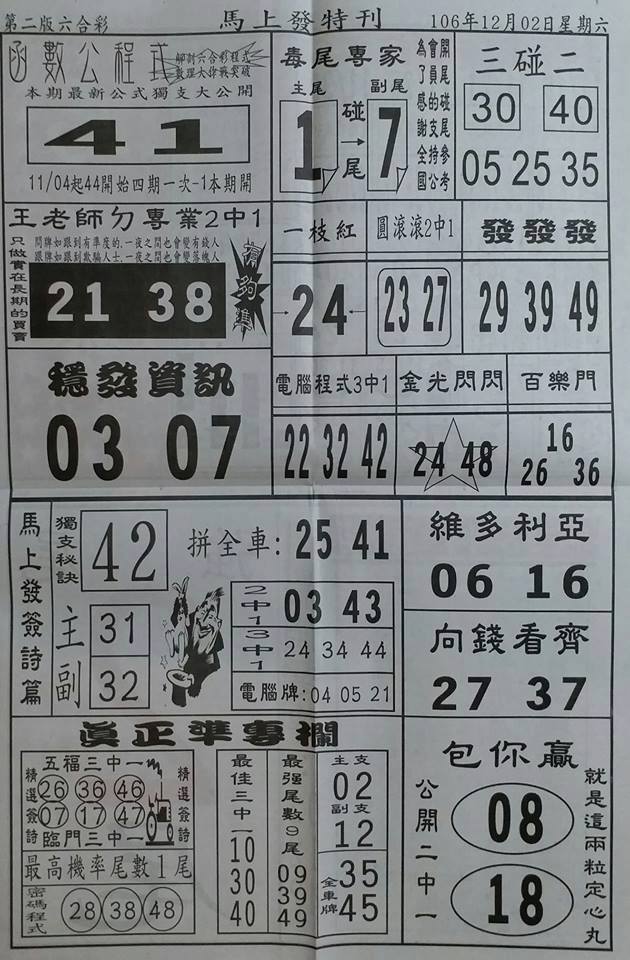 第二版六合彩 馬上發特刊 106年12月02日星期六
函數公程式
解剖六合彩程式
數理大作戰突破
本期最新公式獨支大公開
41
11/04起44開始四期一次-1本期開
毒尾專家
主尾 副尾
1 碰→尾 7
開尾碰尾參考
會員的支持公
為了感謝全國
三碰二
30 40
05 25 35
王老師ㄉ專業2中1
只做實在長期的買賣
問牌如跟到有準度的.一夜之間也會變有錢人
跟牌如跟到欺騙人士.一夜之間也會變落魄人
21 38
有夠準
一枝紅
24
圓滾滾2中1
23 27
發發發
29 39 49
穩發資訊
03 07
電腦程式3中1
22 32 42
金光閃閃
24 48
百樂門
16
26 36
馬上發簽詩篇
獨支秘訣
42
拼全車: 25 41
主 31
副 32
2中1 03 43
3中1 24 34 44
電腦牌:04 05 21
維多利亞
06 16
向錢看齊
27 37
真正準專欄
五福三中一
精選簽詩
26 36 46
07 17 47
精選簽詩
臨門三中一
最高機率尾數1尾
密碼程式
28 38 48
最佳三中一
10
30
40
最强尾數9尾
09
39
49
主支
02
副支
12
全車牌
35
45
包你贏
公開二中一
08
18
就是這兩粒定心丸